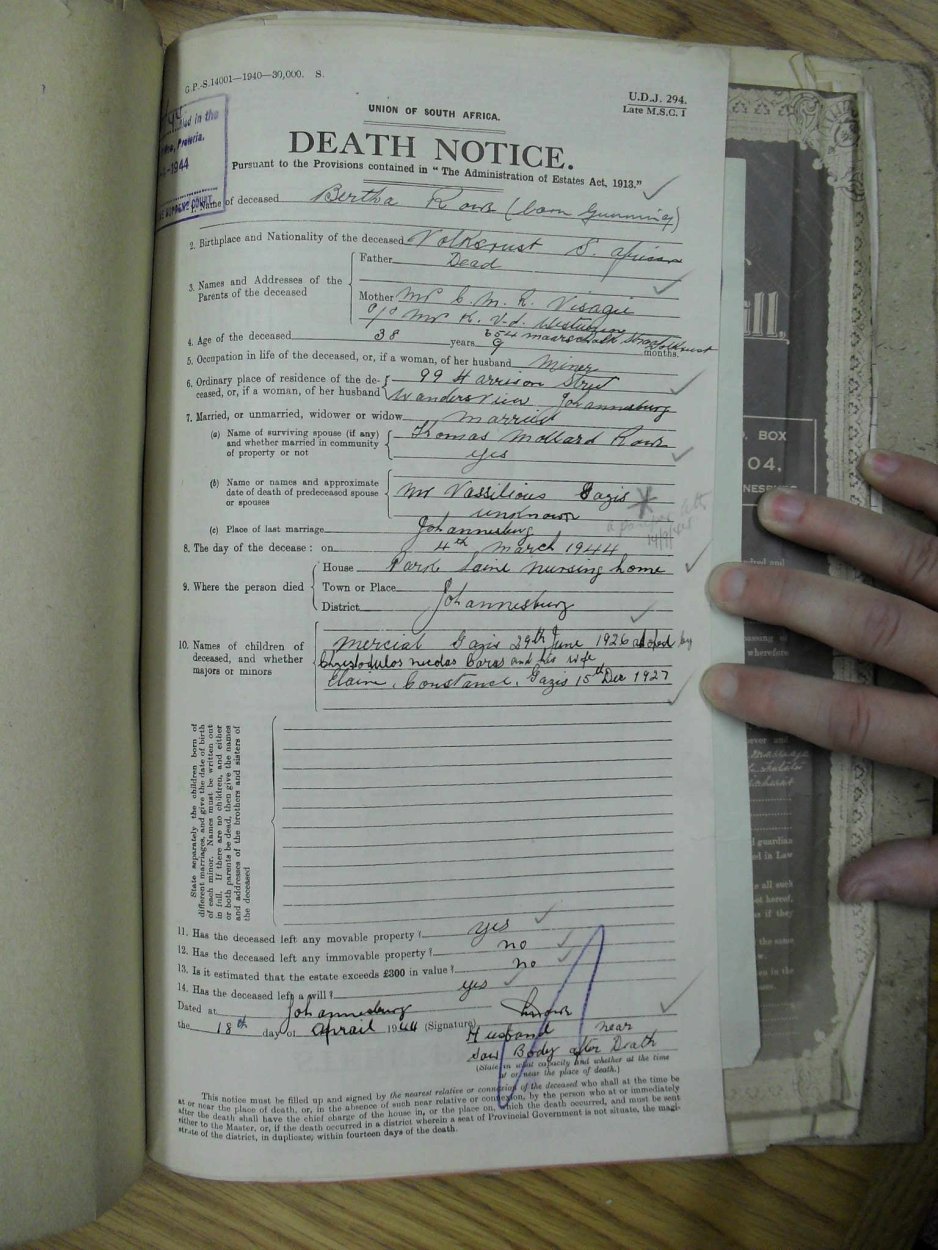 G.P.-S.14001—1940—30,000. S.
U.D.J. 294.
Late M.S.C. 1
UNION OF SOUTH AFRICA.
DEATH NOTICE.
Pursuant to the Provisions contained in "The Administration of Estates Act, 1913."
in the
Pretoria.
-1944
COURT
1. Name of deceased Bertha Rowe (born Gumming)
2. Birthplace and Nationality of the deceased Volksrust S. African
3. Names and Addresses of the Parents of the deceased
Father Dead
Mother Mrs C. M. R. Visagie
c/o Mr K. v.d. Westuizen
654 Maarschalk Street Volksrust
4. Age of the deceased 38 years 9 months.
5. Occupation in life of the deceased, or, if a woman, of her husband Miner
6. Ordinary place of residence of the deceased, or, if a woman, of her husband
99 Harrison Street
Wandersview Johannesburg
7. Married, or unmarried, widower or widow married
(a) Name of surviving spouse (if any) and whether married in community of property or not
Thomas Mollard Rowe
yes
(b) Name or names and approximate date of death of predeceased spouse or spouses
Mr Vassilious Gazis
unknown
(c) Place of last marriage Johannesburg
8. The day of the decease: on 4th March 1944
9. Where the person died
House Park Lane Nursing home
Town or Place
District Johannesburg
10. Names of children of deceased, and whether majors or minors
Mercial Gazis 29th June 1926 adopted by
Christodulos nicolas and his wife
Elaine, Constance, Gazis 15th Dec 1927
State separately the children born of different marriages, and give the date of birth of each minor. Names must be written out in full. If there are no children, and either or both parents be dead, then give the names and addresses of the brothers and sisters of the deceased
11. Has the deceased left any movable property? yes
12. Has the deceased left any immovable property? no
13. Is it estimated that the estate exceeds £300 in value? no
14. Has the deceased left a will? yes
Dated at Johannesburg
the 18th day of Aprail 1944 (Signature)
Husband near
Saw Body after Death
(State in what capacity and whether at the time at or near the place of death.)
This notice must be filled up and signed by the nearest relative or connexion of the deceased who shall at the time be
at or near the place of death, or, in the absence of such near relative or connexion, by the person who at or immediately
after the death shall have the chief charge of the house in, or the place on, which the death occurred, and must be sent
either to the Master, or, if the death occurred in a district wherein a seat of Provincial Government is not situate, the magi-
strate of the district, in duplicate, within fourteen days of the death.
BOX
04,